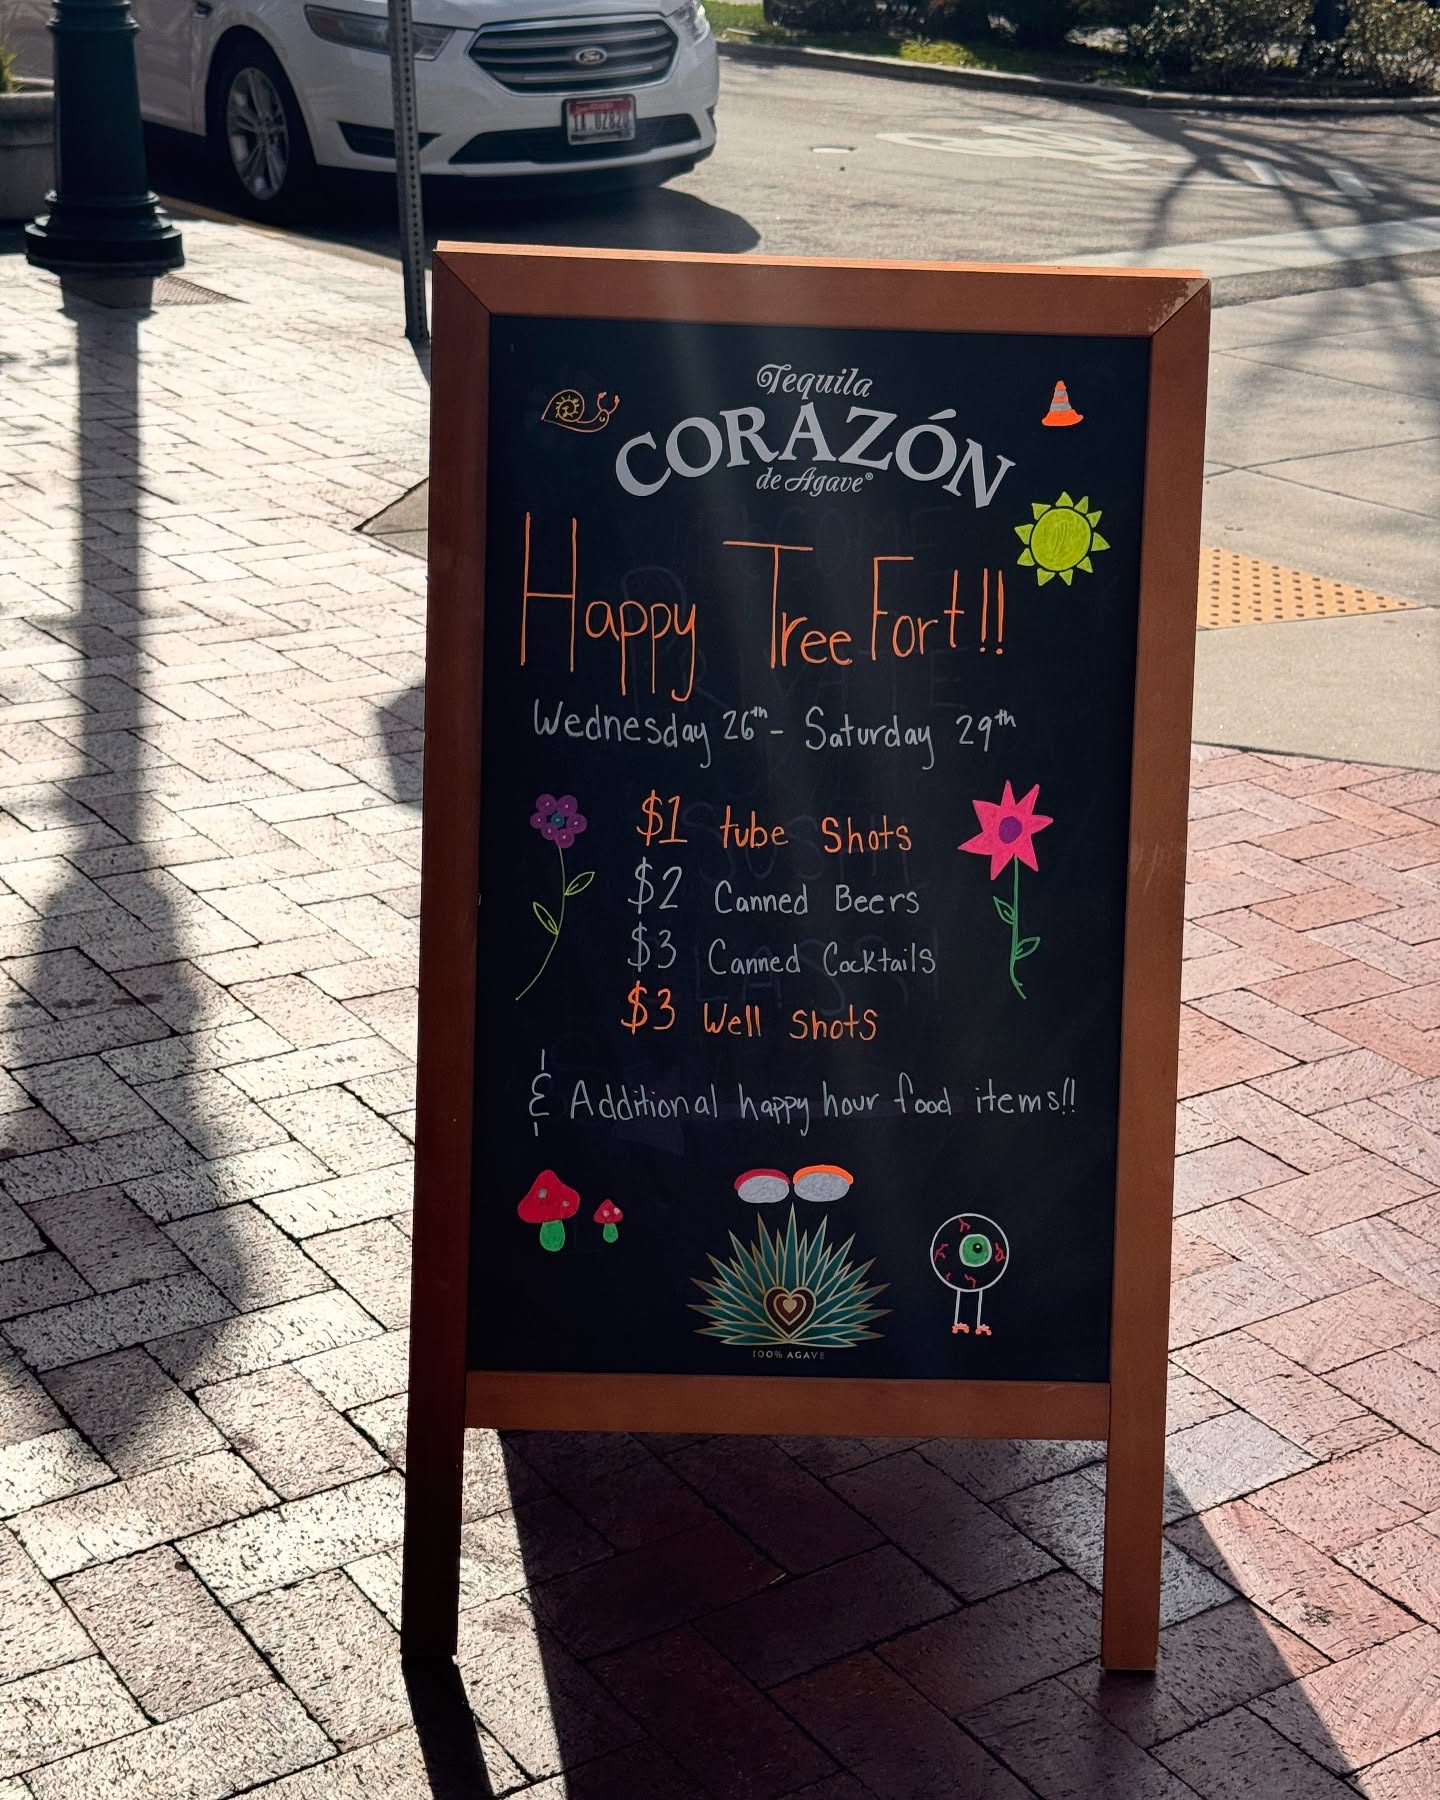 Ford
Tequila
CORAZÓN
de Agave®
Happy Tree Fort!!
Wednesday 26th - Saturday 29th
$1 tube Shots
$2 Canned Beers
$3 Canned Cocktails
$3 Well Shots
& Additional happy hour food items!!
100% AGAVE